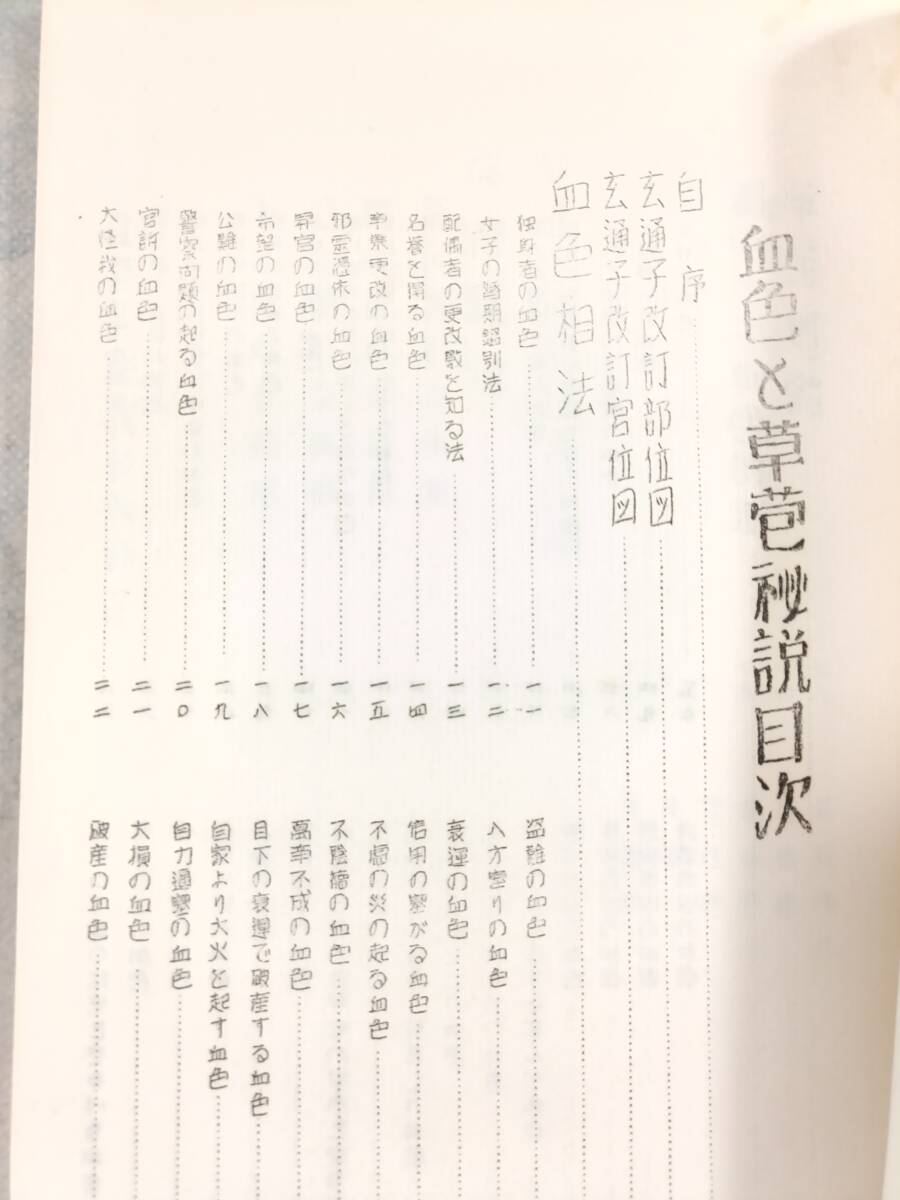 血色と草茞秘説目次
自序
玄通子改訂部位図
玄通子改訂宮位図
血色相法
独身者の血色 一一
女子の婚期鑑別法 一二
配偶者の更改数を知る法 一三
名誉を得る血色 一四
事業更改の血色 一五
邪霊憑依の血色 一六
昇官の血色 一七
希望の血色 一八
公難の血色 一九
警察問題の起る血色 二〇
官訴の血色 二一
大怪我の血色 二二
盗難の血色
八方塞りの血色
衰運の血色
信用の塞がる血色
不慮の災の起る血色
不陰徳の血色
萬事不成の血色
目下の衰運で破産する血色
自家より大火を起す血色
自力通塞の血色
大損の血色
破産の血色